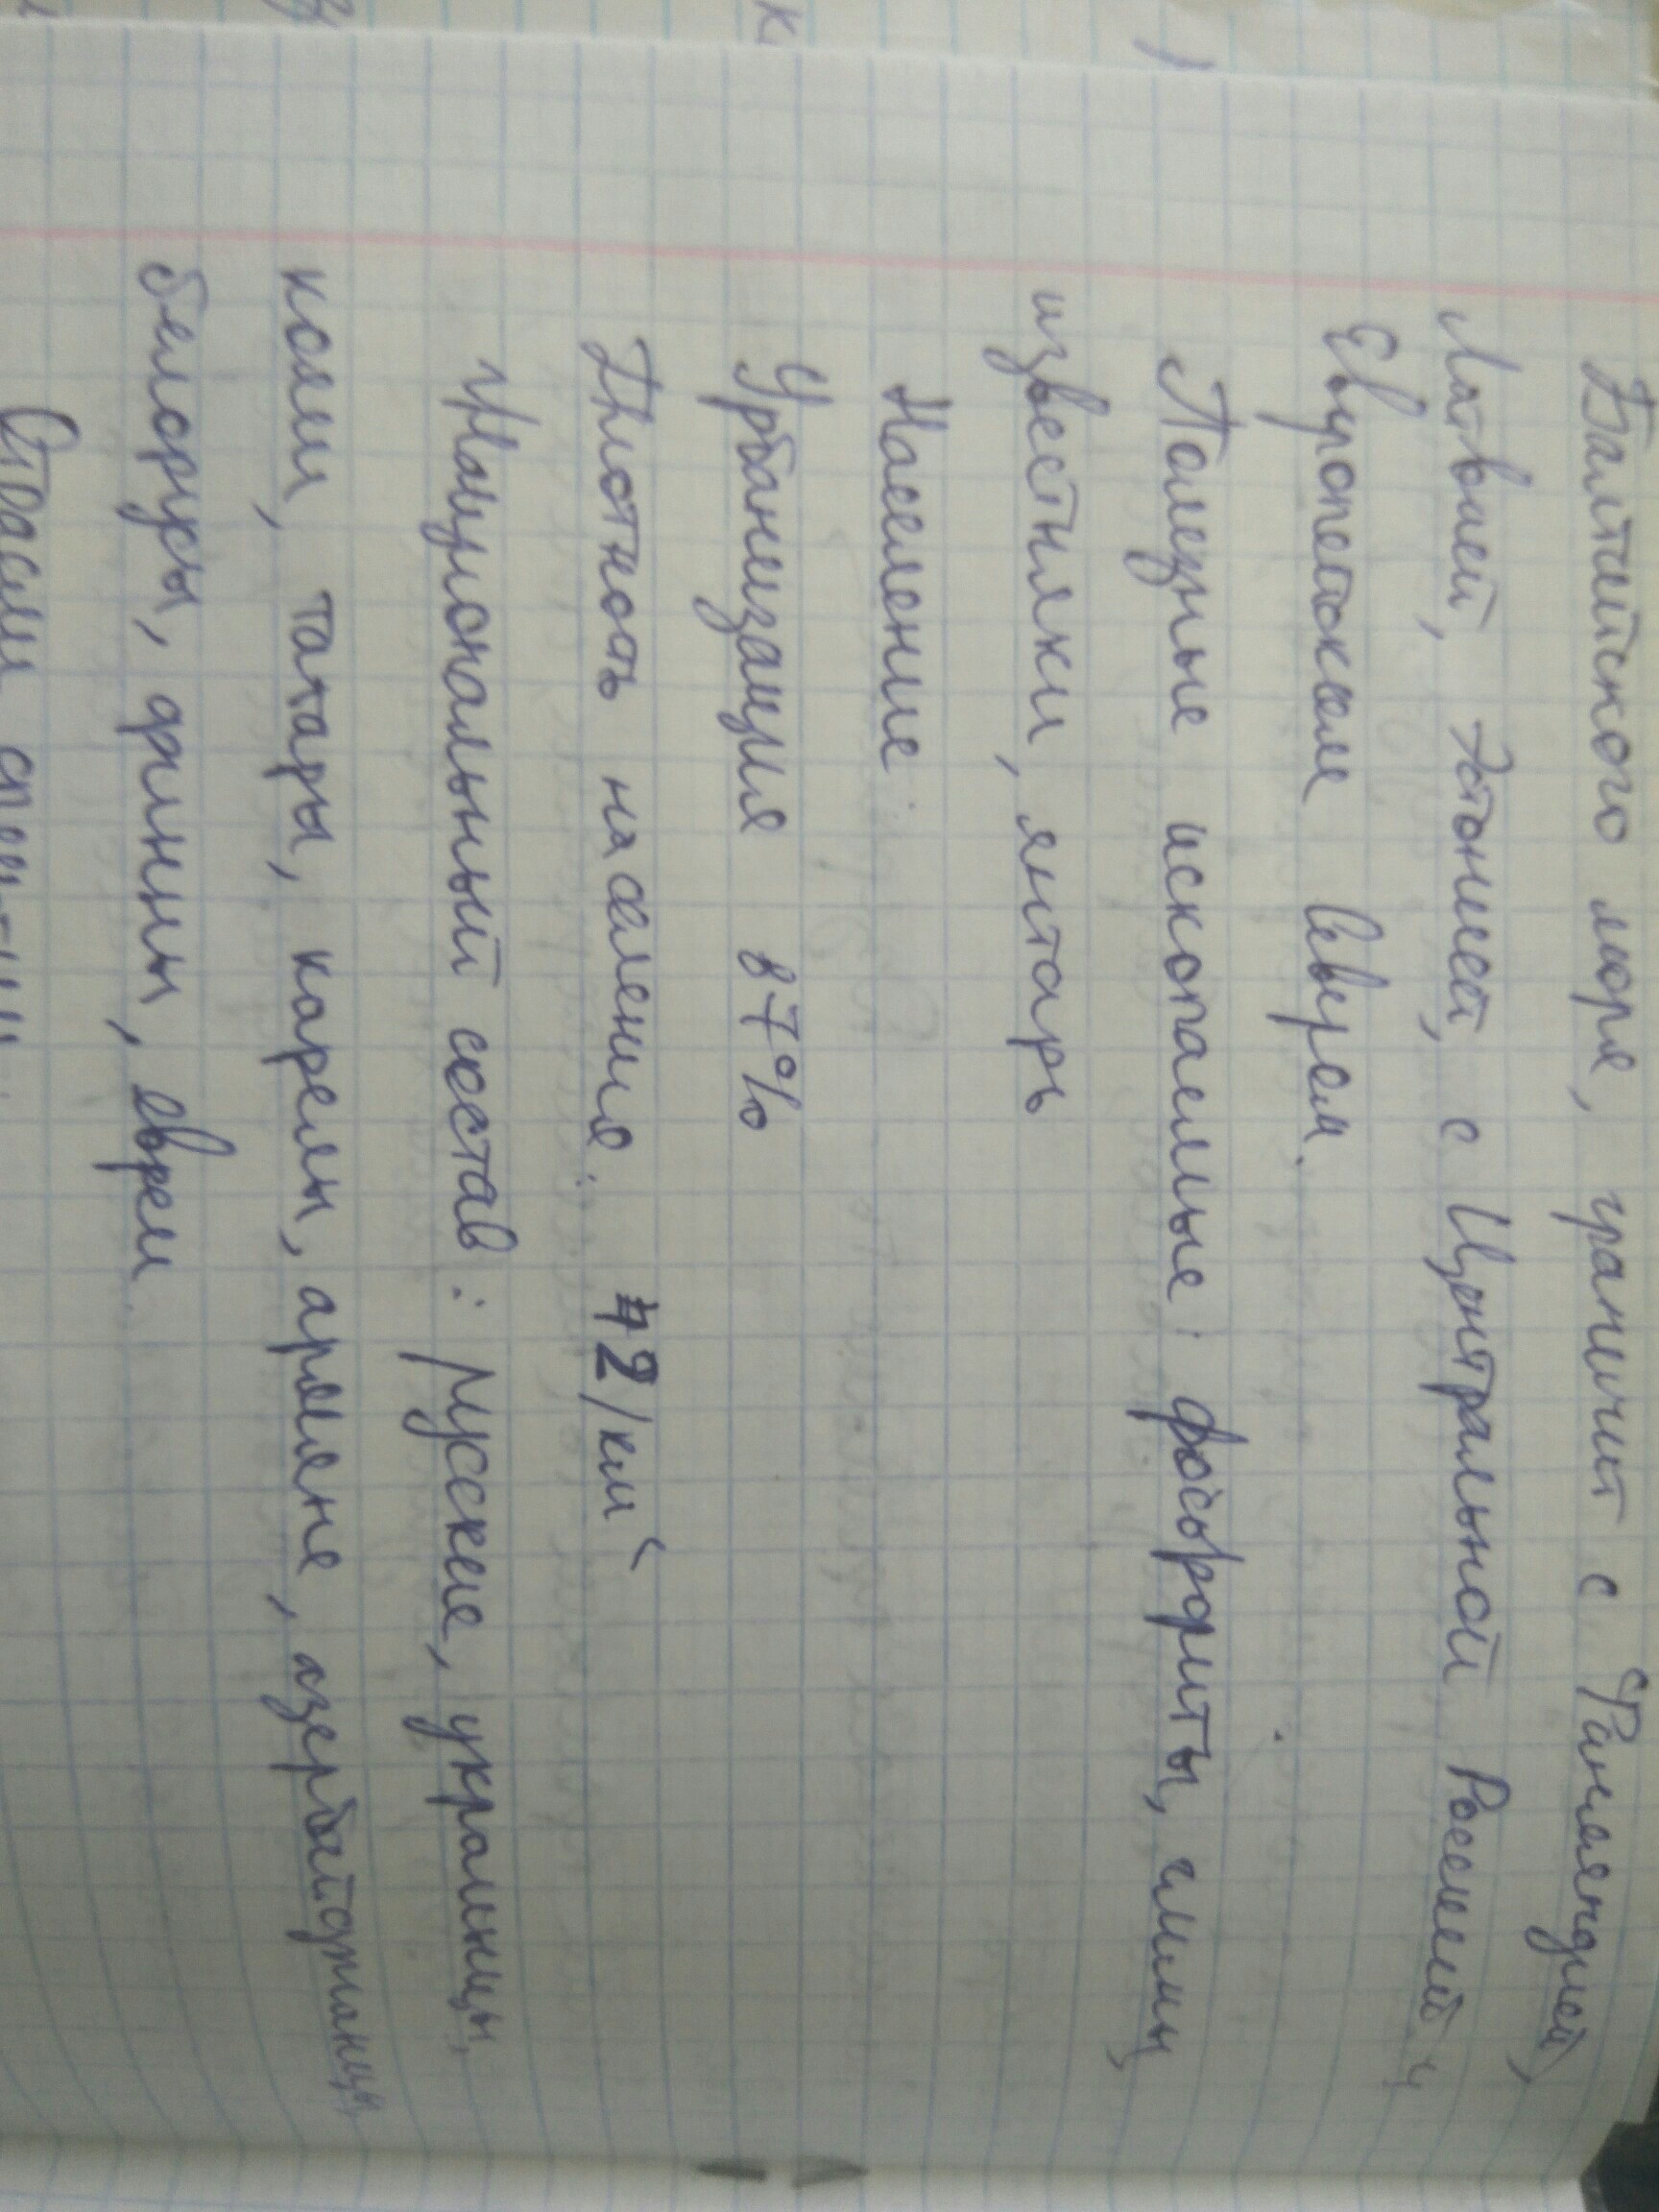 Балтийского моря, граничит с Финляндией,
Латвией, Эстонией, с Центральной Россией и
Европейским Севером.
Полезные ископаемые: фосфориты, глины,
известняки, янтарь
Население:
Урбанизация 87%
Плотность населения: 42/км²
Национальный состав: русские, украинцы,
коми, татары, карелы, армяне, азербайджанцы,
белорусы, финны, евреи
Отрасли